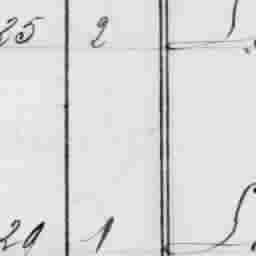 25 2
29 1